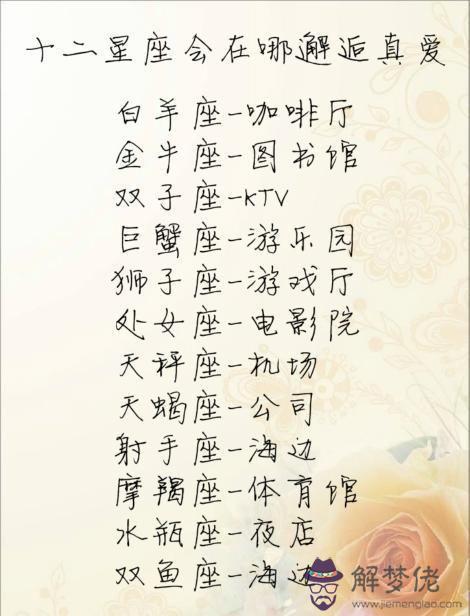 十二星座会在哪邂逅真爱
白羊座-咖啡厅
金牛座-图书馆
双子座-KTV
巨蟹座-游乐园
狮子座-游戏厅
处女座-电影院
天秤座-机场
天蝎座-公司
射手座-海边
摩羯座-体育馆
水瓶座-夜店
双鱼座-海边
解梦佬
www.jiemenglao.com